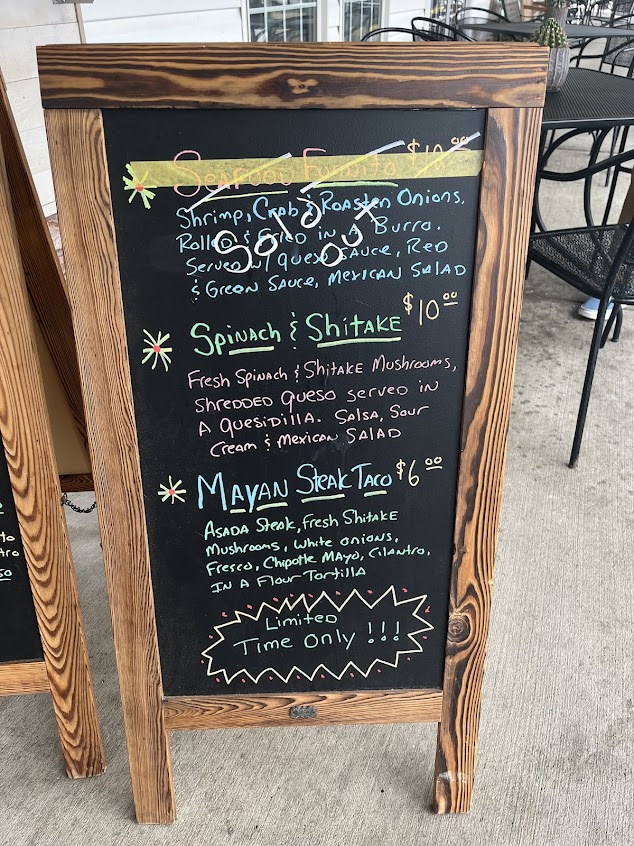 Seafood Fundito $10.00
Shrimp, Crab & Roasten Onions,
Rolled & Fried in A Burro.
Served w/ queso sauce, Red
& Green Sauce, Mexican Salad
Sold
out
Spinach & Shitake $10.00
Fresh Spinach & Shitake Mushrooms,
Shredded Queso served in
A Quesidilla. Salsa, Sour
Cream & Mexican Salad
Mayan Steak Taco $6.00
Asada Steak, Fresh Shitake
Mushrooms, White onions,
Fresco, Chipotle Mayo, Cilantro,
In A Flour Tortilla
Limited
Time Only !!!